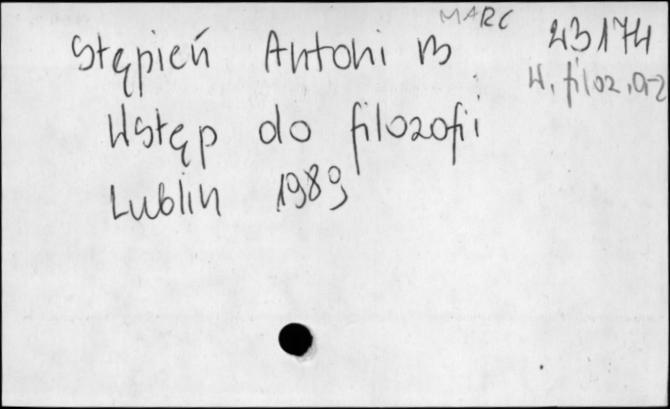 MARC
Stępień Antoni B 23174
H, filoz, 0-2
Wstęp do filozofii
Lublin 1989